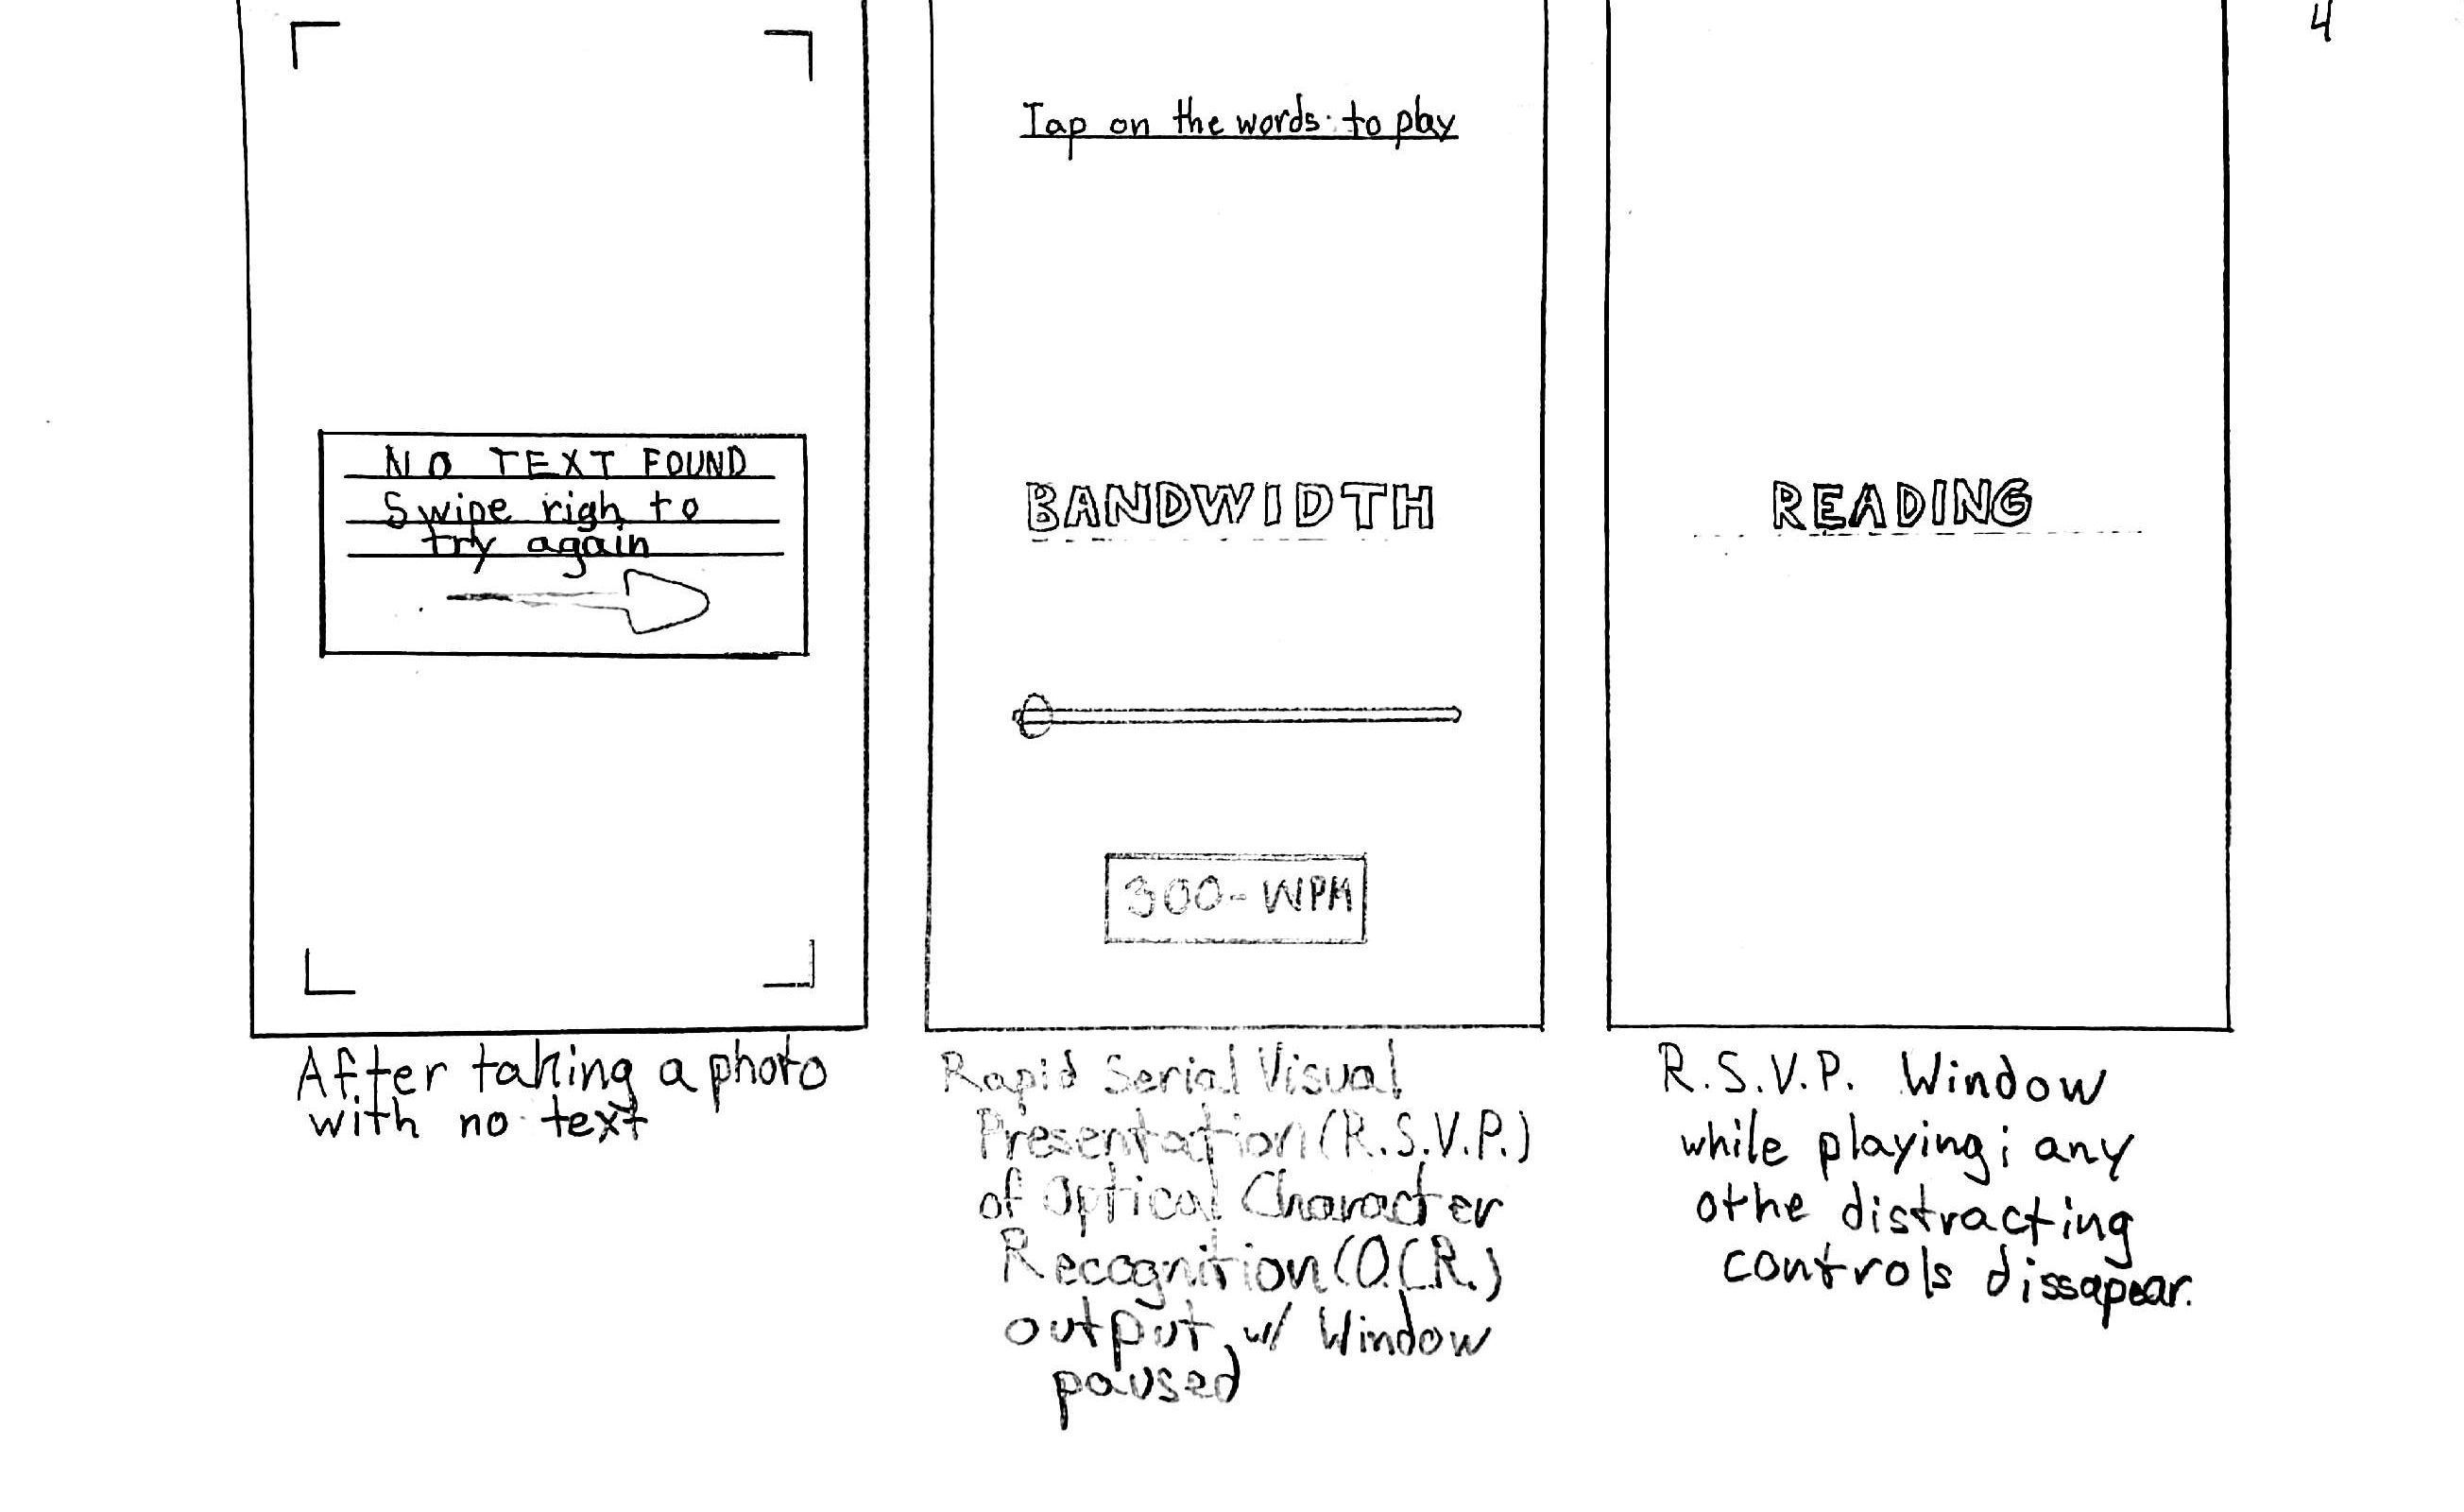 4
NO TEXT FOUND
Swipe righ to
try again
After taking a photo
with no text
Tap on the words to play
BANDWIDTH
300-WPM
Rapid Serial Visual
Presentation (R.S.V.P.)
of Optical Character
Recognition (O.C.R.)
output w/ Window
paused
READING
R.S.V.P. Window
while playing; any
othe distracting
controls dissapear.